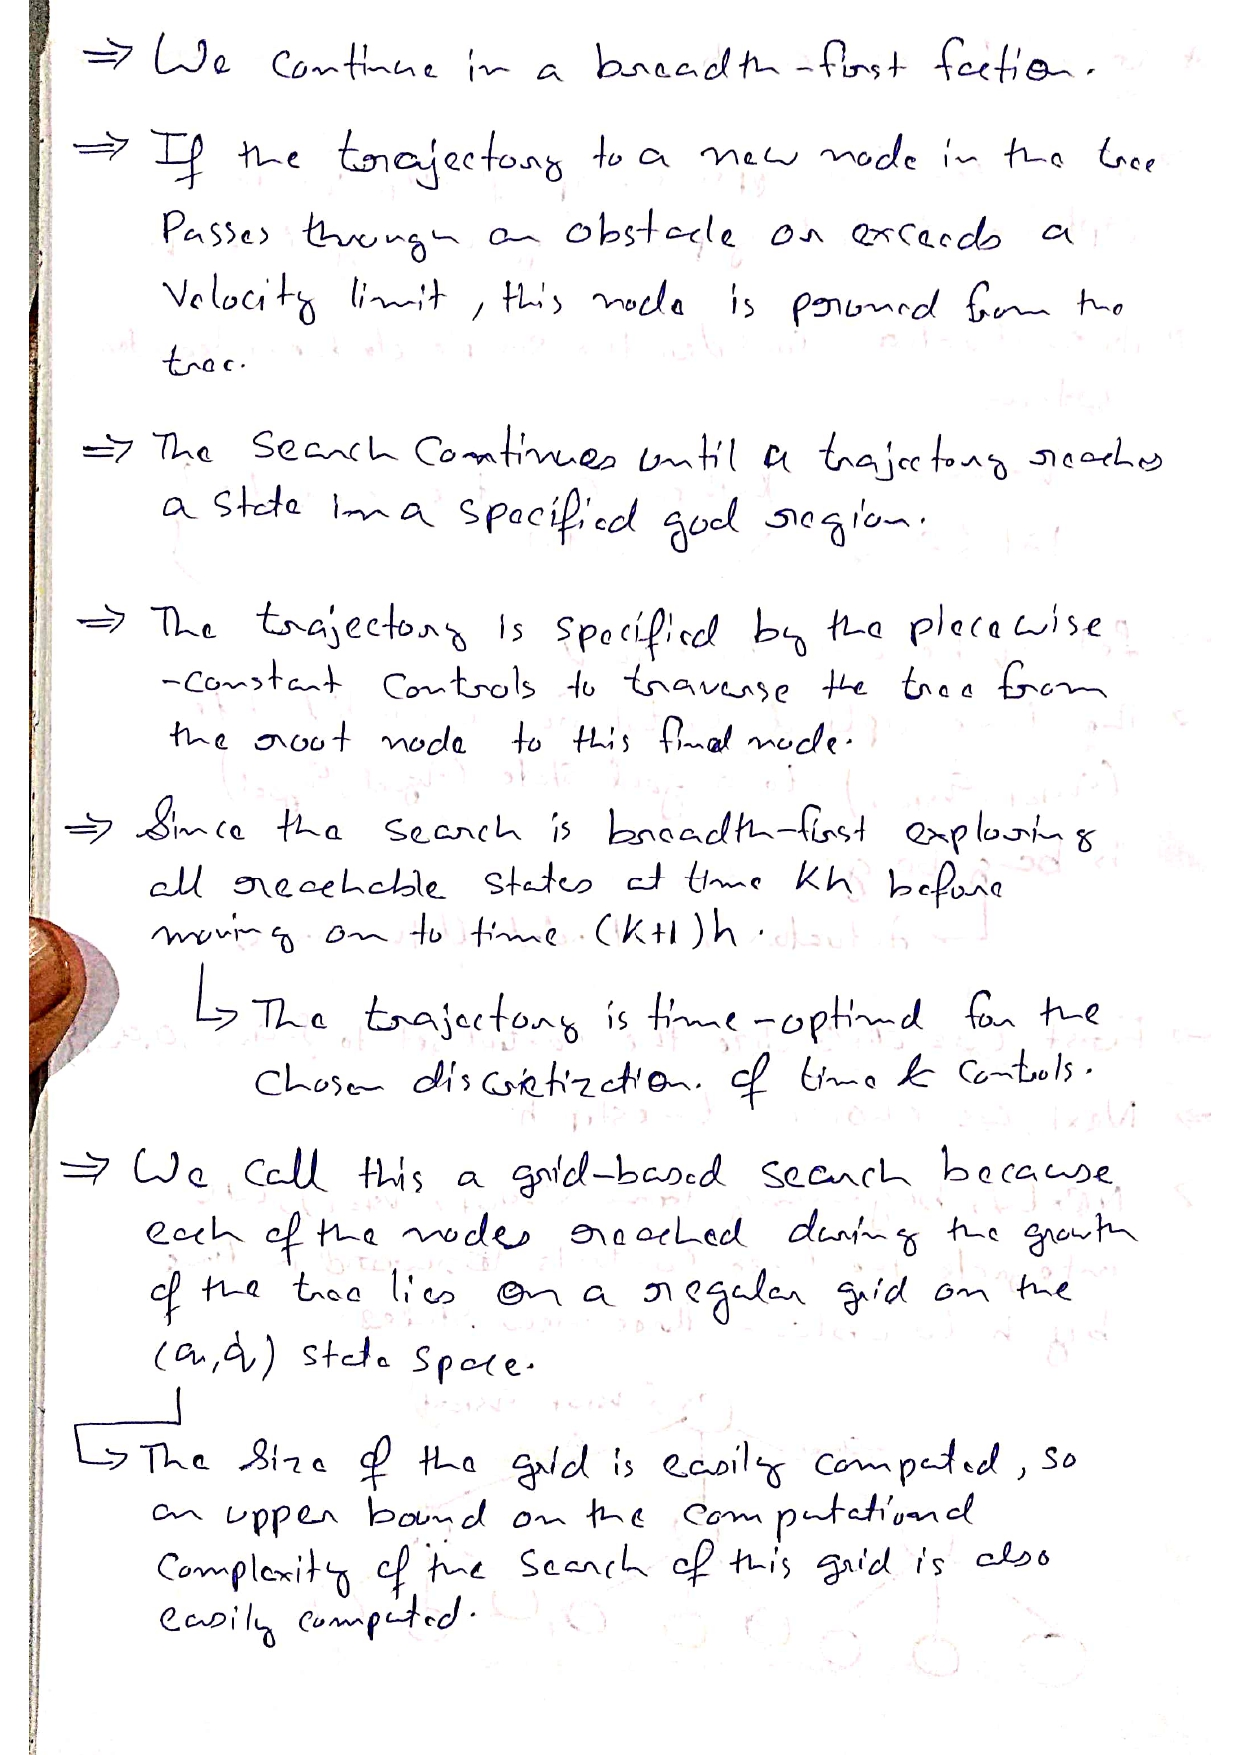 ⇒ We continue in a breadth-first faction.
⇒ If the trajectory to a new node in the tree
Passes through an obstacle or exceeds a
Velocity limit, this node is pruned from the
tree.
⇒ The Search Continues until a trajectory reaches
a state in a specified goal region.
⇒ The trajectory is specified by the piecewise
-constant Controls to traverse the tree from
the root node to this final node.
⇒ Since the search is breadth-first exploring
all reachable states at time kh before
moving on to time (k+1)h.
↳ The trajectory is time-optimal for the
Chosen discretization of time & Controls.
⇒ We call this a grid-based search because
each of the nodes reached during the growth
of the tree lies on a regular grid on the
(q, q̇) state space.
↳ The Size of the grid is easily computed, so
an upper bound on the computational
Complexity of the Search of this grid is also
easily computed.